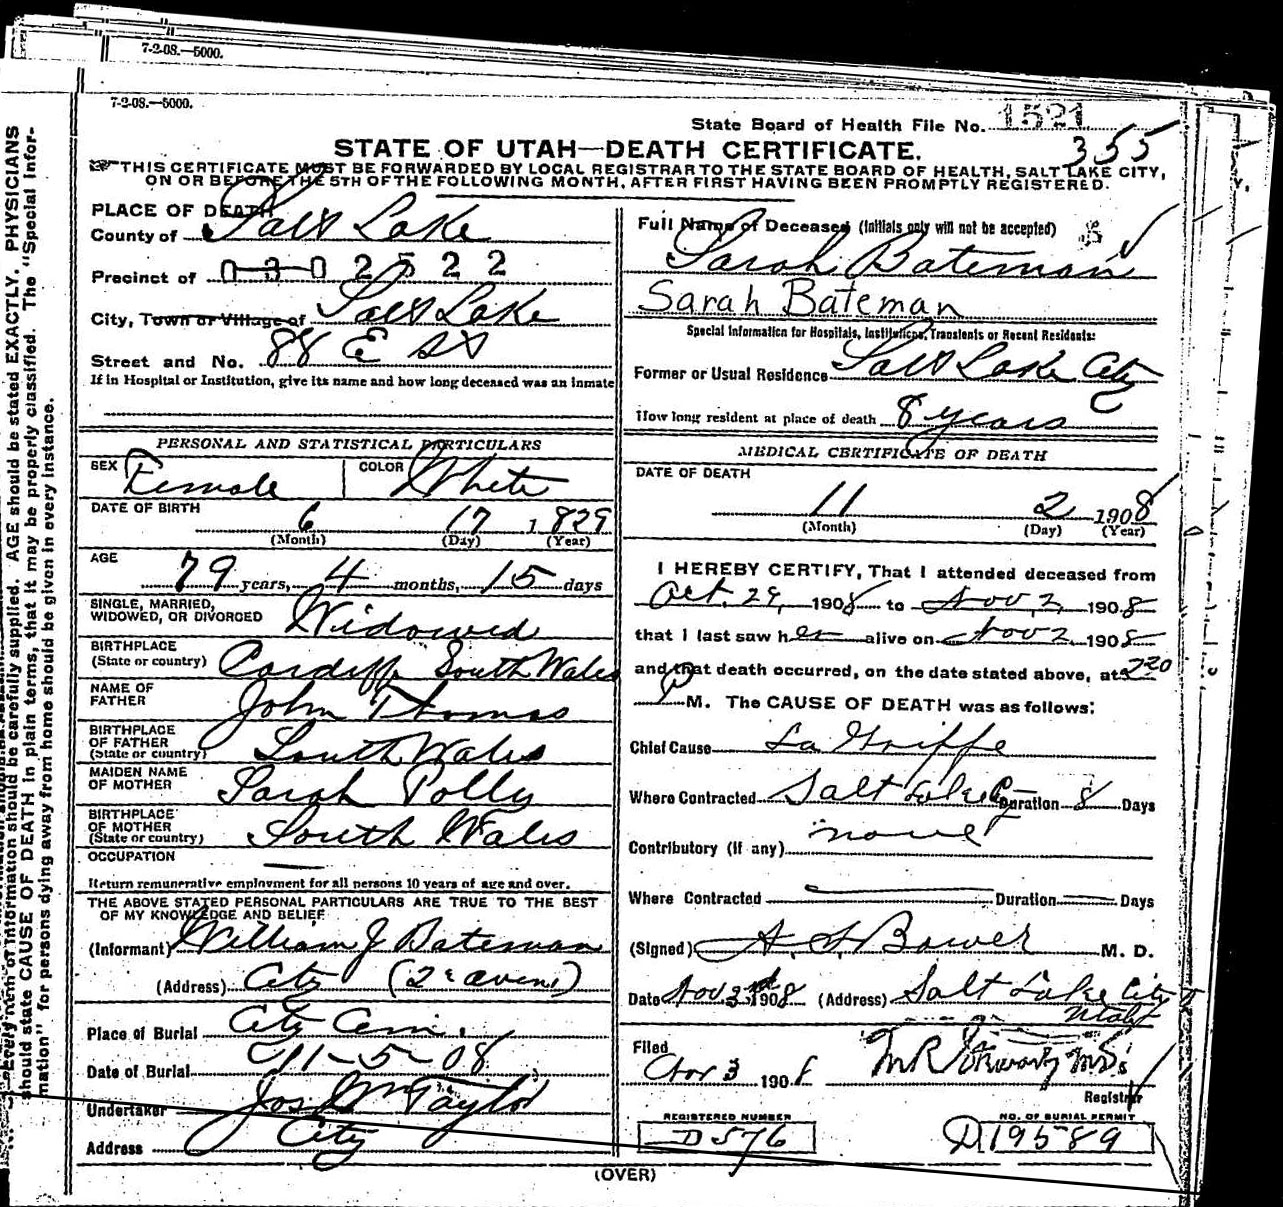 7-2-08.—5000.
7-2-08.—5000.
State Board of Health File No. 1521
355
STATE OF UTAH—DEATH CERTIFICATE.
THIS CERTIFICATE MUST BE FORWARDED BY LOCAL REGISTRAR TO THE STATE BOARD OF HEALTH, SALT LAKE CITY,
ON OR BEFORE THE 5TH OF THE FOLLOWING MONTH, AFTER FIRST HAVING BEEN PROMPTLY REGISTERED.
PLACE OF DEATH
County of Salt Lake
Precinct of 0302522
City, Town or Village of Salt Lake
Street and No. 88 E
If in Hospital or Institution, give its name and how long deceased was an inmate
PERSONAL AND STATISTICAL PARTICULARS
SEX Female COLOR White
DATE OF BIRTH
6 17 1829
(Month) (Day) (Year)
AGE
79 years, 4 months, 15 days
SINGLE, MARRIED,
WIDOWED, OR DIVORCED Widowed
BIRTHPLACE
(State or country) Cardiff South Wales
NAME OF
FATHER John Thomas
BIRTHPLACE
OF FATHER
(State or country) South Wales
MAIDEN NAME
OF MOTHER Sarah Polly
BIRTHPLACE
OF MOTHER
(State or country) South Wales
OCCUPATION
Return remunerative employment for all persons 10 years of age and over.
THE ABOVE STATED PERSONAL PARTICULARS ARE TRUE TO THE BEST
OF MY KNOWLEDGE AND BELIEF
(Informant) William J Bateman
(Address) City
Place of Burial City Cem.
Date of Burial 11-5-08
Undertaker Jos Wm Taylor
Address City
Full Name of Deceased (Initials only will not be accepted)
Sarah Bateman
Sarah Bateman
Special Information for Hospitals, Institutions, Transients or Recent Residents:
Former or Usual Residence Salt Lake City
How long resident at place of death 8 years
MEDICAL CERTIFICATE OF DEATH
DATE OF DEATH
11 2 1908
(Month) (Day) (Year)
I HEREBY CERTIFY, That I attended deceased from
Oct. 29, 1908 to Nov 2, 1908
that I last saw her alive on Nov 2 1908
and that death occurred, on the date stated above, at 220
P M. The CAUSE OF DEATH was as follows:
Chief Cause La Grippe
Where Contracted Salt Lake Cy Duration 8 Days
Contributory (if any) none
Where Contracted Duration Days
(Signed) A. S. Bower M. D.
Date Nov. 3rd 1908 (Address) Salt Lake City
Utah
Filed
Nov 3 1908
Registrar
REGISTERED NUMBER
D576
NO. OF BURIAL PERMIT
D19589
(OVER)
Every item of information should be carefully supplied. AGE should be stated EXACTLY. PHYSICIANS
should state CAUSE OF DEATH in plain terms, that it may be properly classified. The "Special Infor-
mation" for persons dying away from home should be given in every instance.